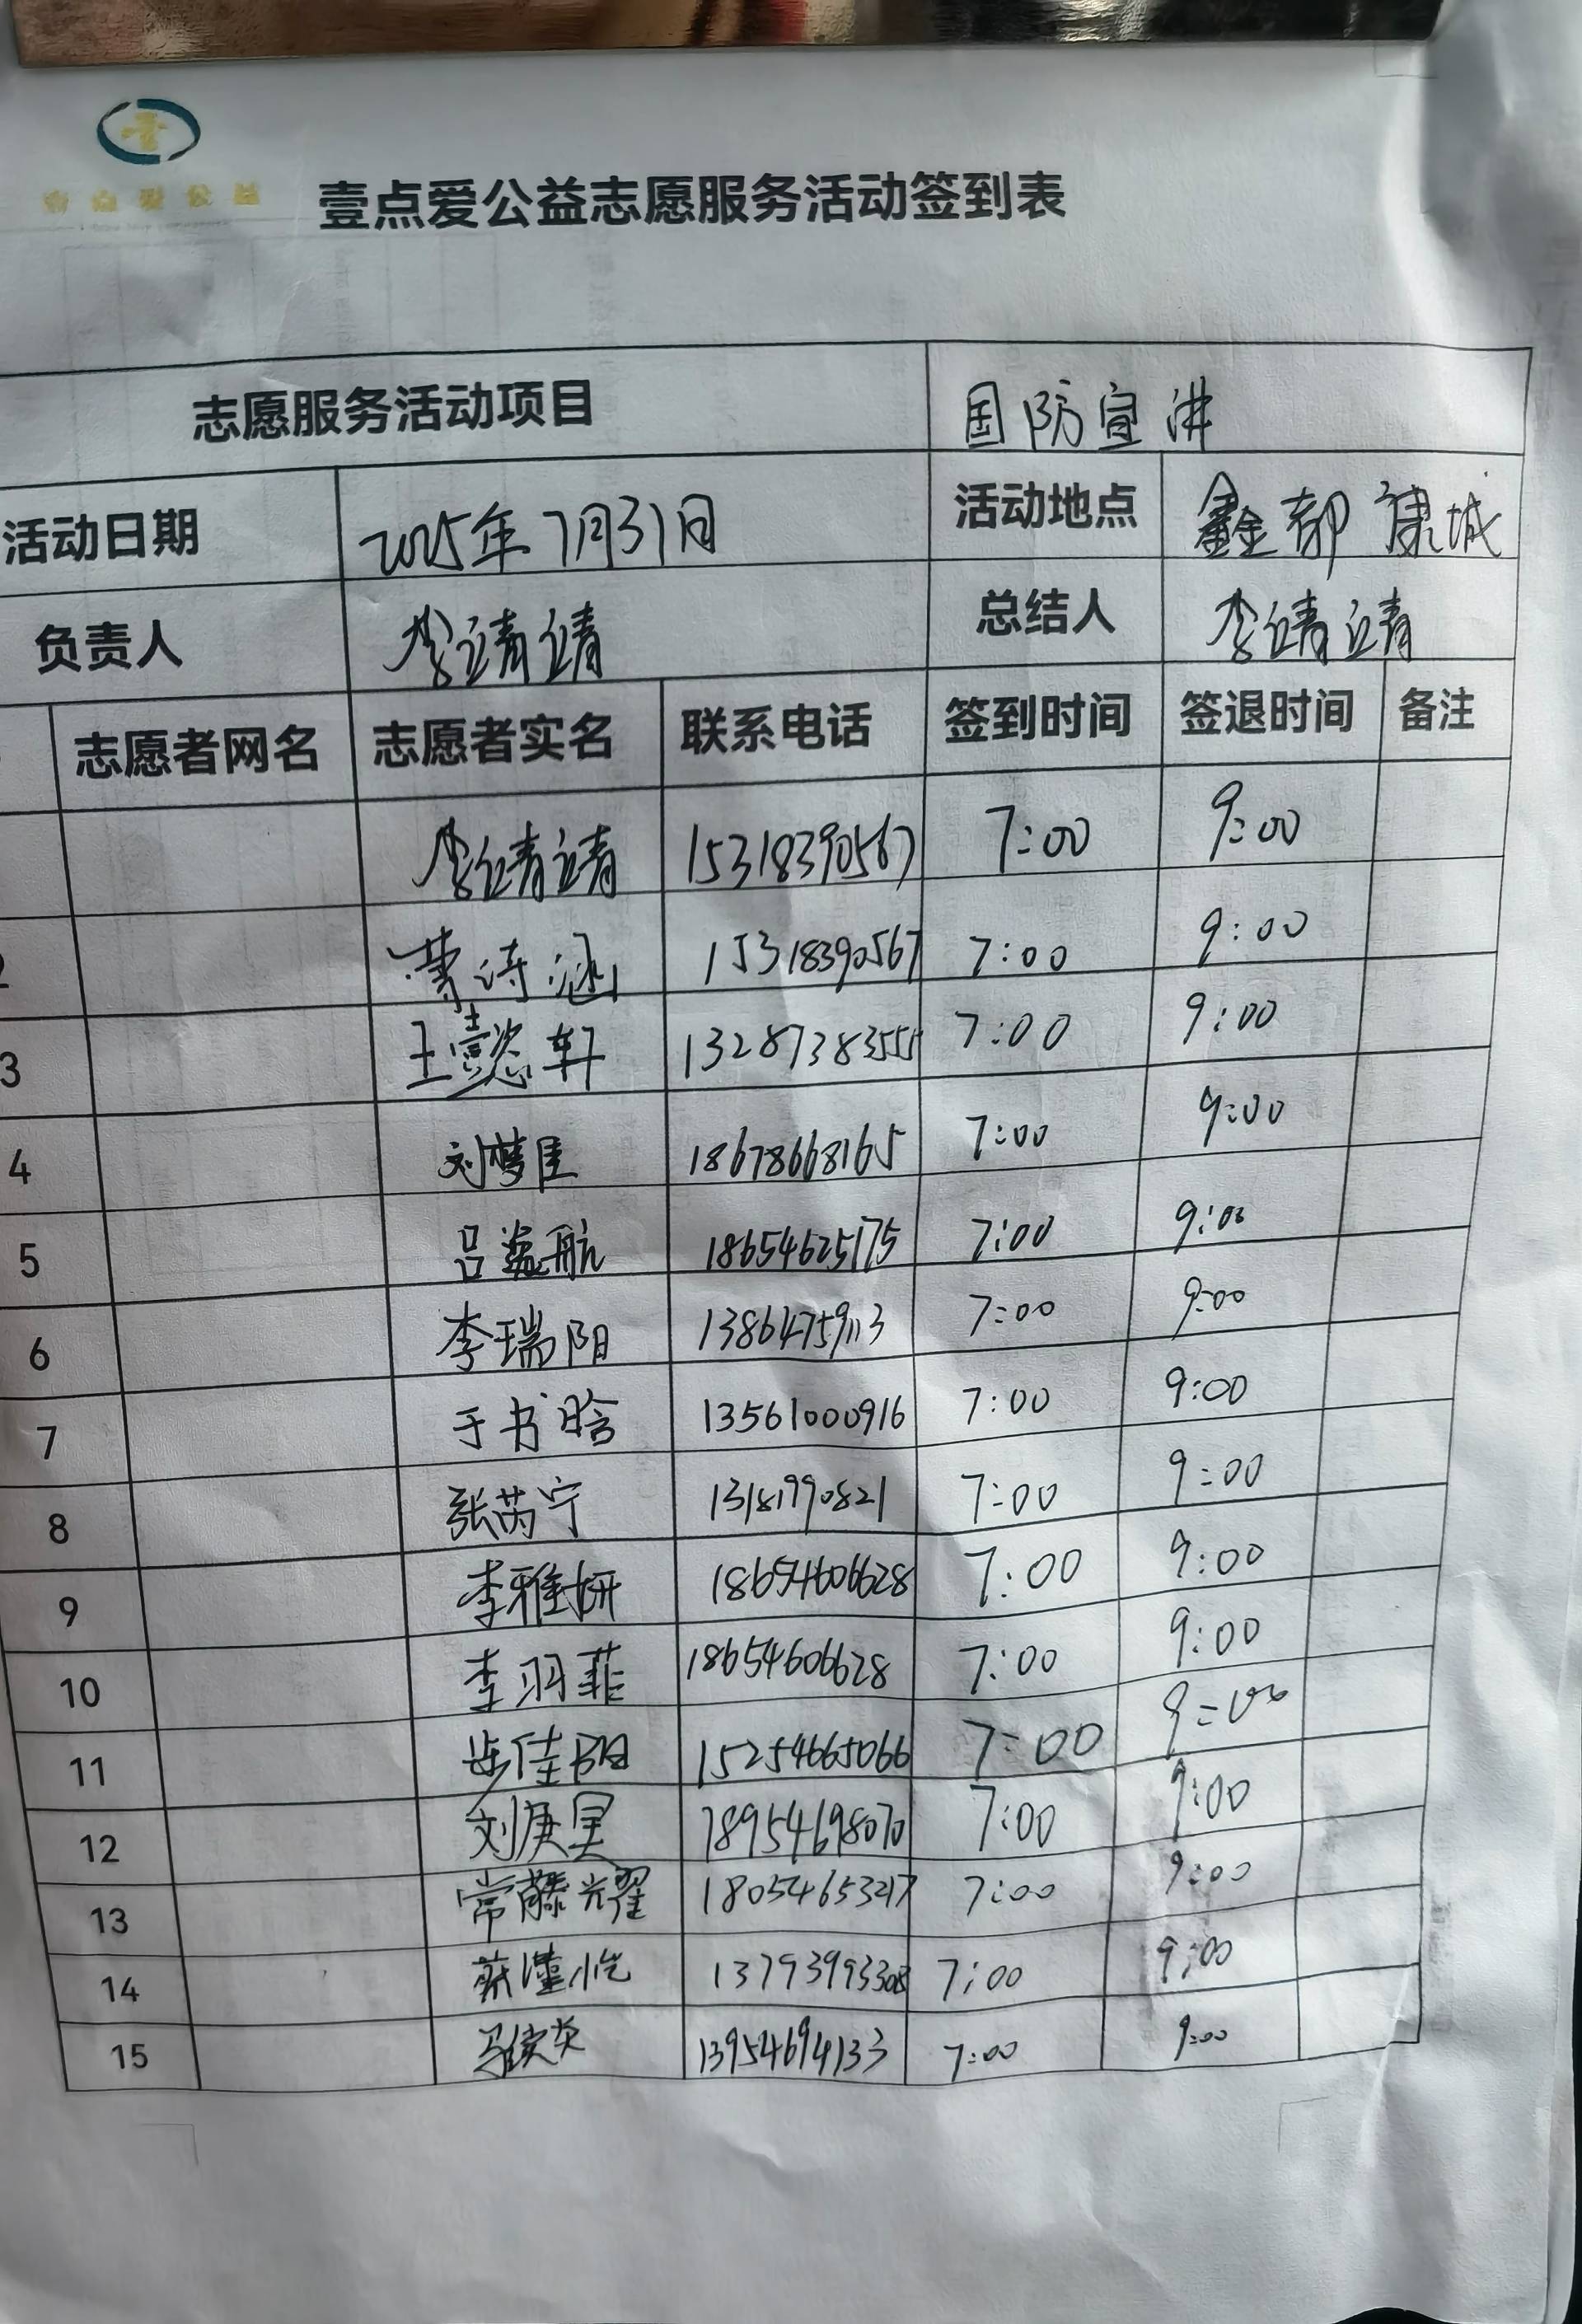 壹点爱公益
壹点爱公益志愿服务活动签到表
志愿服务活动项目 国防宣讲
活动日期 2025年7月31日 活动地点 鑫都康城
负责人 李靖靖 总结人 李靖靖
志愿者网名 志愿者实名 联系电话 签到时间 签退时间 备注
李靖靖 15318390567 7:00 9:00
2 诗涵 15318390567 7:00 9:00
3 王懿轩 13287383555 7:00 9:00
4 刘梦佳 18678668165 7:00 9:00
5 吕航 18654625175 7:00 9:00
6 李瑞阳 13864759113 7:00 9:00
7 于书晗 13561000916 7:00 9:00
8 张芮宁 13181990821 7:00 9:00
9 李雅妍 18654606628 7:00 9:00
10 李羽菲 18654606628 7:00 9:00
11 步佳阳 15254665066 7:00 9:00
12 刘庚昊 18954698070 7:00 9:00
13 常藤耀 18054653217 7:00 9:00
14 蔡瑾忆 13793993308 7:00 9:00
15 13954694133 7:00 9:00